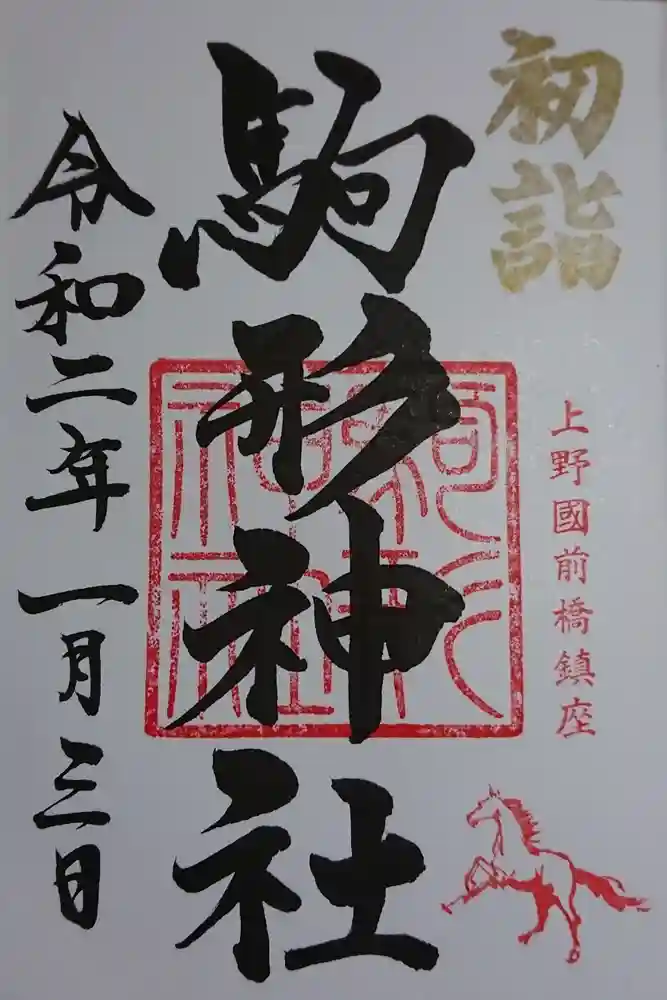 初詣
上野國前橋鎮座
駒形神社
駒形神社
令和二年一月三日